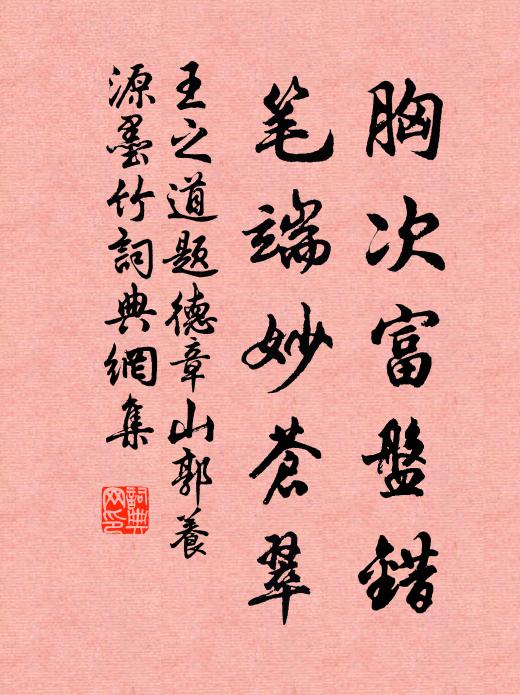 胸次富盤錯
笔端妙蒼翠
王之道題德章山郭養
源墨竹詞典網集
詞典
网印